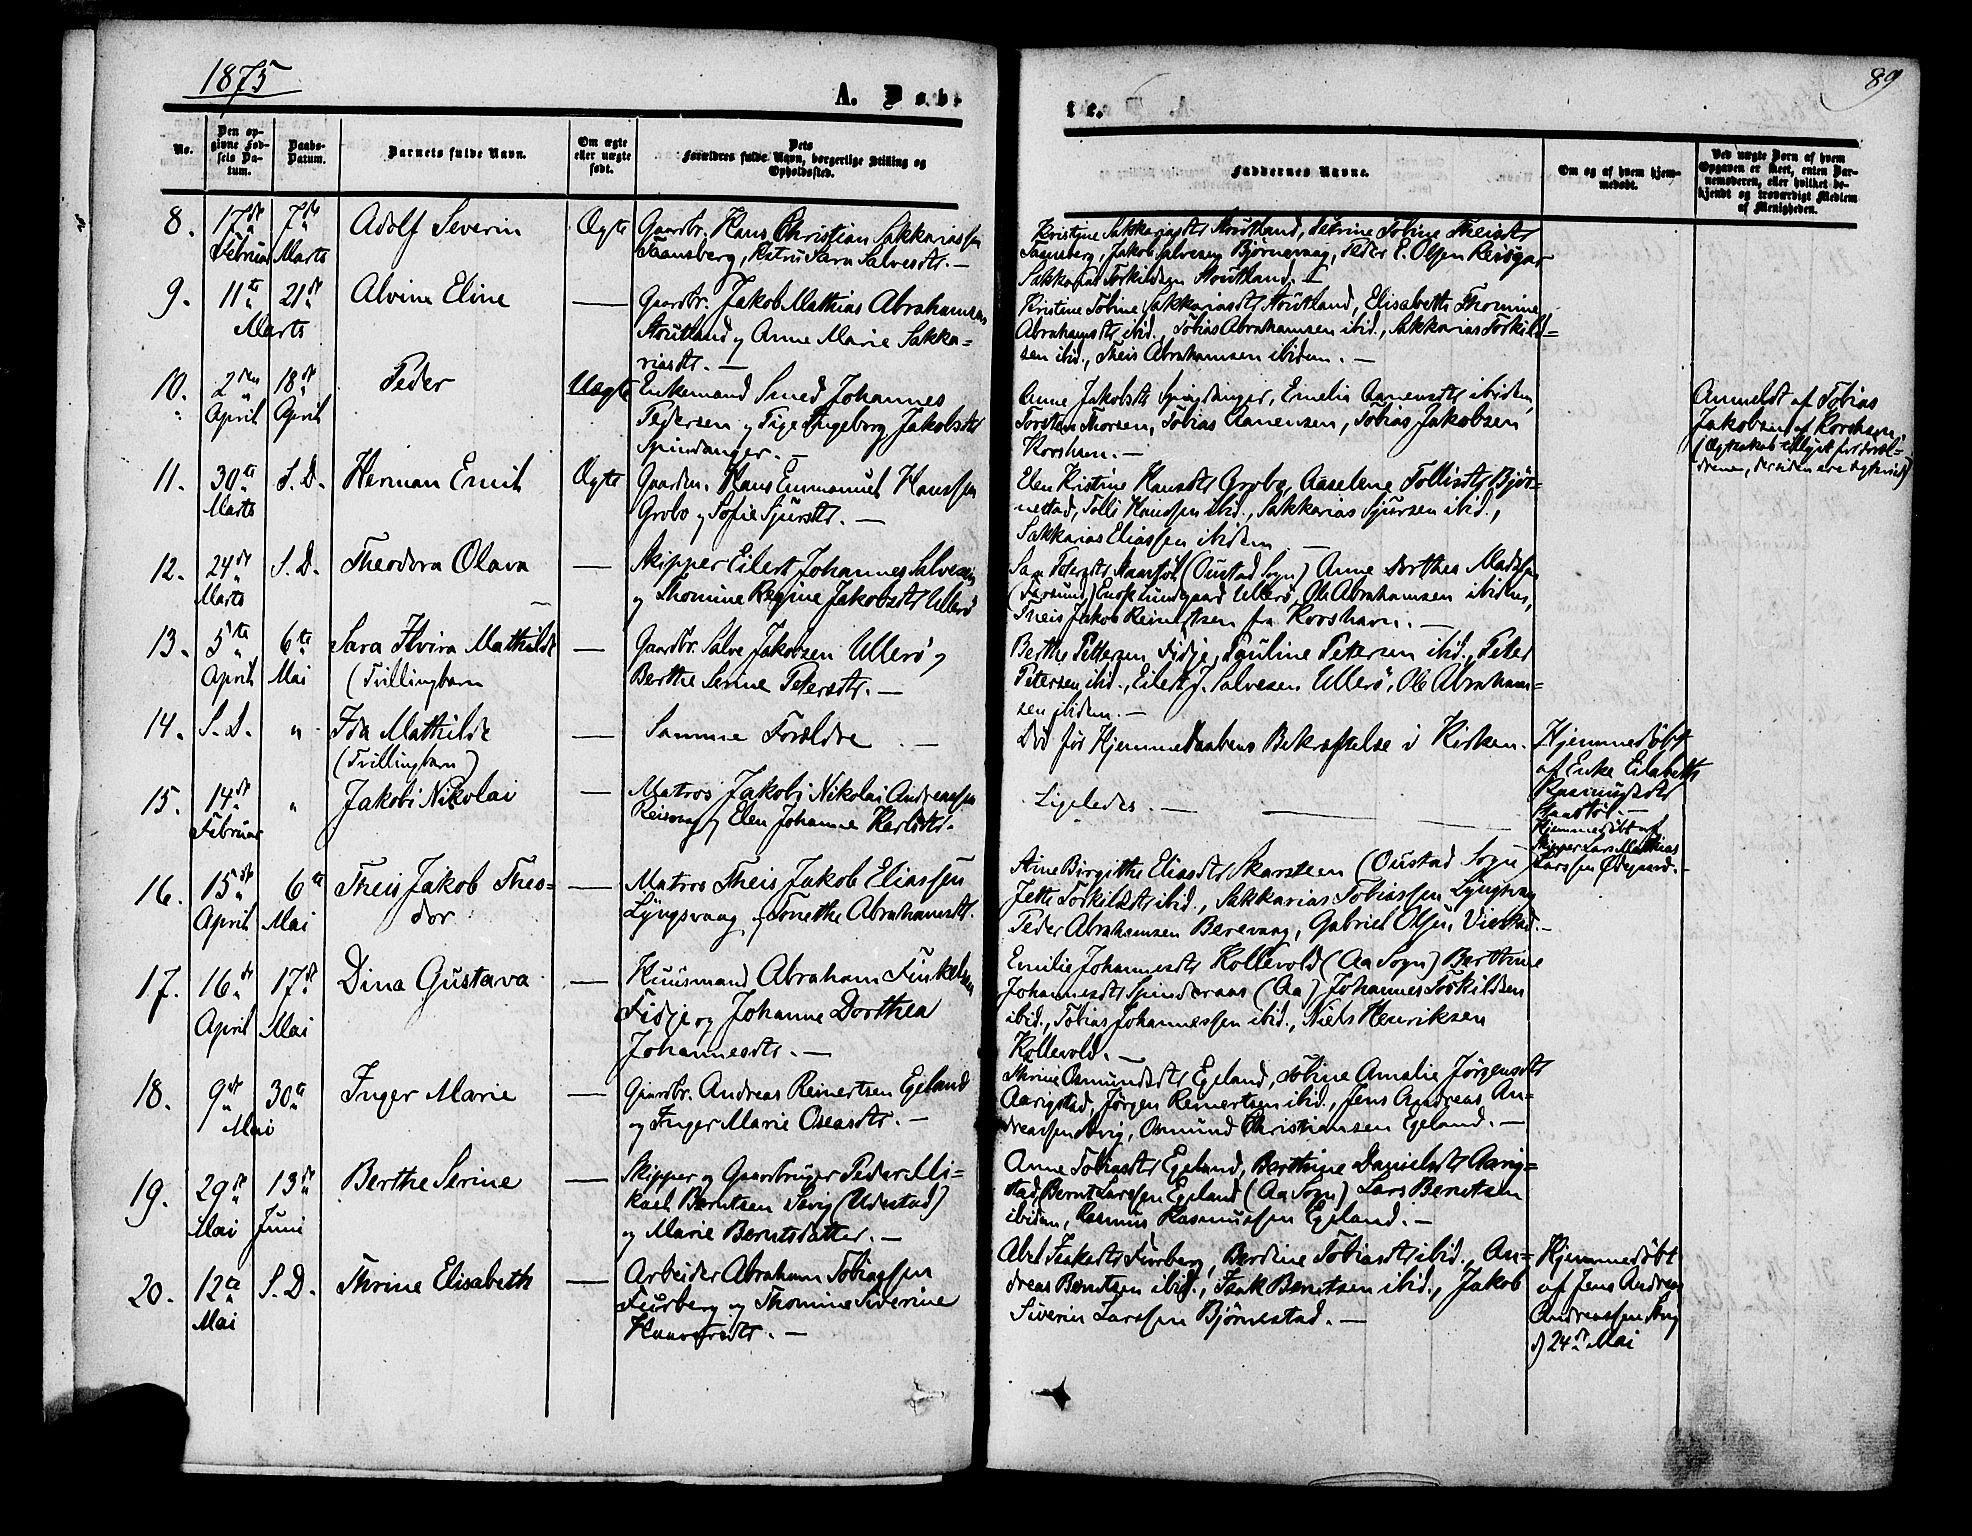 1875
89
A. Døbte.
No.
Den opgivne Fødsels Datum.
Daabs-Datum.
Barnets fulde Navn.
Om ægte eller uægte født.
Dets Forældres fulde Navn, borgerlige Stilling og Opholdssted.
Faddernes Navne.
Om og af hvem hjemmedøbt.
Ved uægte Børn af hvem Opgaven er skeet, enten Barnemoderen, eller hvilket bekjendt og troværdigt Medlem af Menigheden.
8. 17de Februar 7de Marts Adolf Severin Ægte Gaardbr. Hans Christian Sakkariassen
Taansberg, Petra Sara Salvesdtr. —
Kristine Sakkariasdtr Stoutland, Petrine Tobine Theisdtr
Taansberg, Jakob Salvesen Bjørnevaag, Peder E. Olsen
Sakkarias Torkildsen Stoutland. —
9. 11te 21de Marts Alvine Eline — Gaardbr. Jakob Mathias Abrahamsen
Stoutland og Anne Marie Sakka-
riasdtr. —
Kristine Tobine Sakkariasdtr Stoutland, Elisabeth Thomine
Abrahamsdtr ibid., Tobias Abrahamsen ibid., Sakkarias Torkild-
sen ibid., Theis Abrahamsen ibidem. —
10. 2den April 18de April Peder Uægte Enkemand Smed Johannes
Pedersen og Pige Ingeborg Jakobsdtr
Spindanger. —
Anne Jakobsdtr Spindanger, Emelia Aanensdtr ibidem,
Torsten Thorsen, Tobias Aanensen, Tobias Jakobsen
Korshavn. —
Anmeldt af Tobias
Jakobsen af Korshavn.
(Ægteskab tillyst for Foræl-
drene, der siden ere ægteviede)
11. 30te Marts S. D. Herman Emil Ægte Gaardm. Hans Emmanuel Hanssen
Grobo og Sofie Sjursdtr. —
Elen Kristine Hansdtr Grobo, Aaselene Tollisdtr Bjør-
nestad, Tolli Hanssen ibid., Sakkarias Sjursen ibid.,
Sakkarias Eliassen ibidem —
12. 24de Marts S. D. Theodora Olava — Skipper Eilert Johannes Salvesen
og Thomine Regine Jakobsdtr Ullerø
Petersdtr (Oustad Sogn) Anne Dorthea Madssen
(Farsund) Ullerø, Ole Abrahamsen ibidem,
Theis Jakob Reinertsen fra Korshavn. —
13. 5te April 6te Mai Sara Elvira Mathilde — Gaardbr. Salve Jakobsen Ullerø og
(Tvillingbarn Berthe Serine Petersdtr. —
Berthe Pettersen Fidje, Pauline Petersen ibid., Peter
Petersen ibid., Eilert J. Salvesen Ullerø, Ole Abraham-
sen ibidem. —
14. S. D. " Ida Mathilde — Samme Forældre. —
(Tvillingbarn)
Død før Hjemmedaabens Bekræftelse i Kirken.
Hjemmedøbt
af Enke Elisabeth
Rasmusdtr
15. 14de Februar " Jakobi Nikolai — Matros Jakob Nikolai Andreassen
Reisvaag og Elen Johanne Karlsdtr.
Ligeledes. —
Hjemmedøbt af
Skipper Lars Mathias
Larssen Ødegaard. —
16. 15de April 6te Mai Theis Jakob Theo-
dor — Matros Theis Jakob Eliassen
Lyngsvaag og Tonette Abrahamsdtr.
Ane Birgithe Eliasdtr Skarsteen (Oustad Sogn)
Jette Torkildsdtr ibid., Sakkarias Tobiassen Lyngsvaag
Peder Abrahamsen Berevaag, Gabriel Olsen Viestad. —
17. 16de April 17de Mai Dina Gustava — Huusmand Abraham
Fidje og Johanne Dorthea
Johannesdtr. —
Emilie Johannesdtr Kollevold (Aa Sogn) Berthine
Johannesdtr Spinderaas (Aa) Johannes Torkildsen
ibid., Tobias Johannessen ibid., Niels Henriksen
Kollevold. —
18. 9de 30te Mai Inger Marie — Gaardbr. Andreas Reinertsen Egeland
og Inger Marie Oseasdtr. —
Thrine Osmundsdtr Egeland, Tobine Amalie Jørgensdtr
Aarigstad, Jørgen Reinertsen ibid., Jens Andreas An-
dreassen Sevig, Osmund Christiansen Egeland. —
19. 29de Mai 13de Juni Berthe Serine — Skipper og Gaardbruger Peder Mi-
kael Berntsen Sevig
og Marie Berntsdatter. —
Anne Tobiasdtr Egeland, Berthine Danielsdtr Aarig-
stad, Bernt Larssen Egeland (Aa Sogn) Lars Berntsen
ibidem, Rasmus Rasmussen Egeland. —
20. 12te Mai S. D. Thrine Elisabeth — Arbeider Abraham Tobiassen
Fuurberg og Thomine Siverine
Haavorsdtr. —
Abel Isaksdtr Fuurberg, Berdine Tobiasdtr ibid., An-
dreas Berntsen ibid., Isak Berntsen ibid., Jakob
Siverin Larssen Bjørnestad. —
Hjemmedøbt
af Jens Andreas
Andreassen Sevig
d) 24de Mai